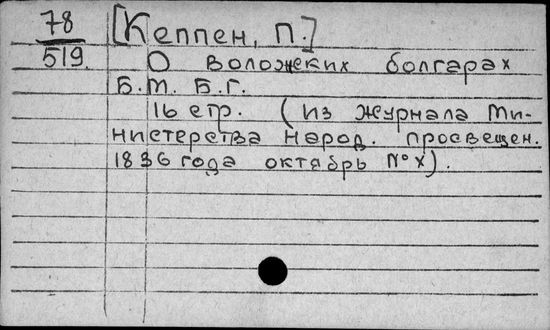 78 [Кеппен, П.]
519. О воложских болгарах
Б.М. Б.Г.
16 стр. (из журнала Ми-
нистерства народ. просвещен.
1836 года октябрь № X).